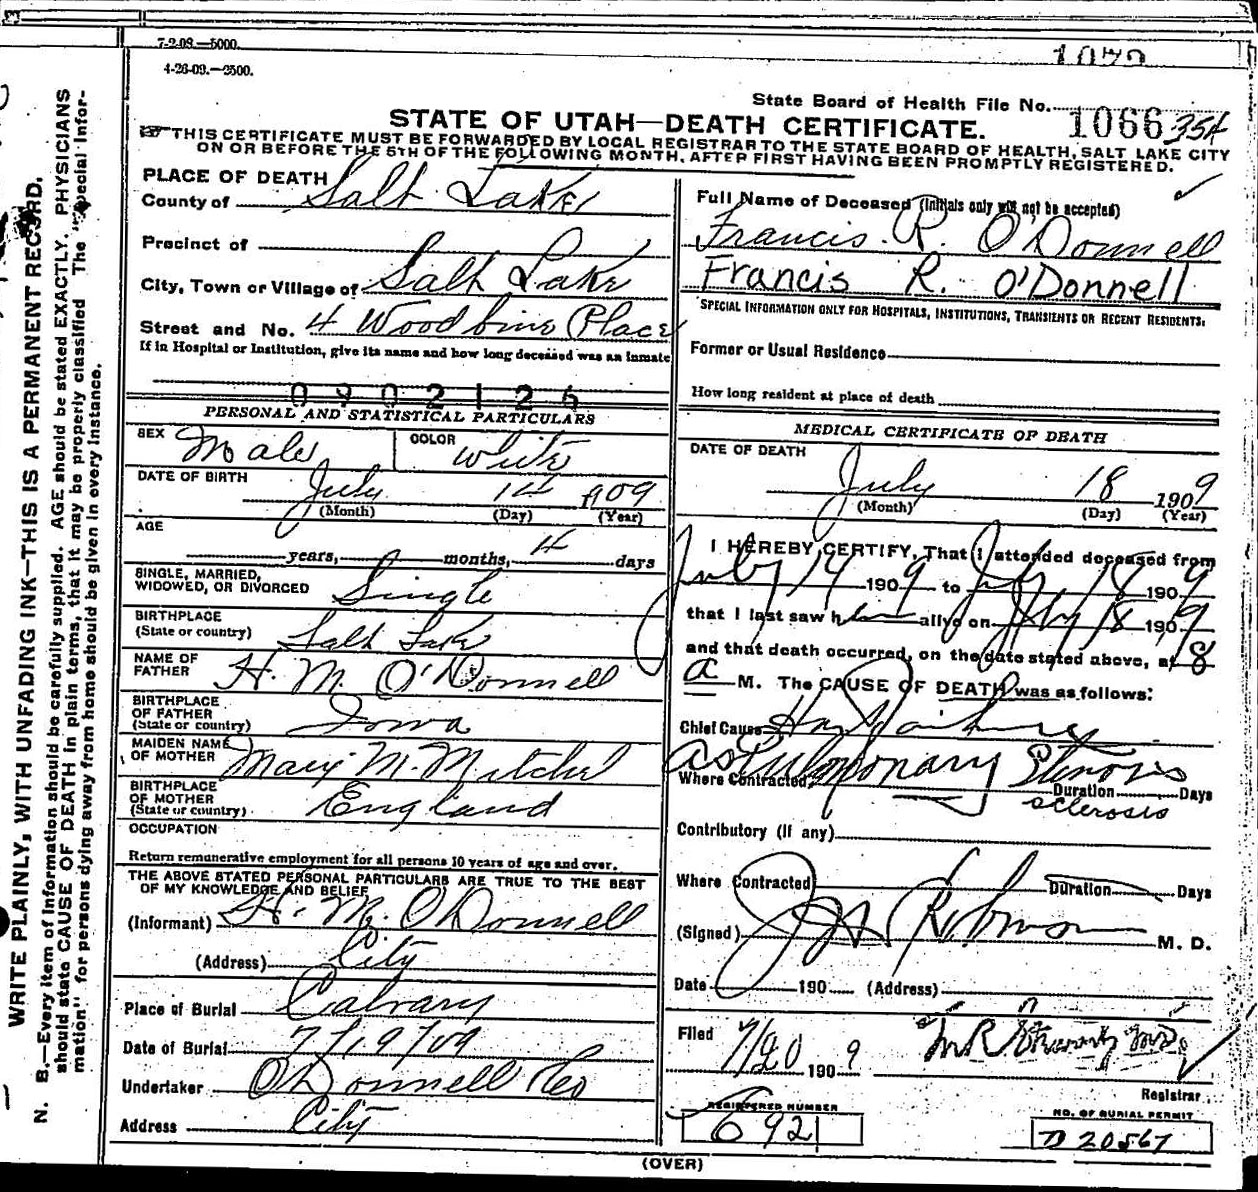 7-2-08.—5000.
4-26-09.—2500.
1072
State Board of Health File No. 1066 354
STATE OF UTAH—DEATH CERTIFICATE.
THIS CERTIFICATE MUST BE FORWARDED BY LOCAL REGISTRAR TO THE STATE BOARD OF HEALTH, SALT LAKE CITY
ON OR BEFORE THE 5TH OF THE FOLLOWING MONTH, AFTER FIRST HAVING BEEN PROMPTLY REGISTERED.
WRITE PLAINLY, WITH UNFADING INK—THIS IS A PERMANENT RECORD.
N. B.—Every item of information should be carefully supplied. AGE should be stated EXACTLY. PHYSICIANS
should state CAUSE OF DEATH in plain terms, that it may be properly classified. The "Special Infor-
mation" for persons dying away from home should be given in every instance.
PLACE OF DEATH
County of Salt Lake
Precinct of
City, Town or Village of Salt Lake
Street and No. 4 Woodbine Place
If in Hospital or Institution, give its name and how long deceased was an inmate
0902126
PERSONAL AND STATISTICAL PARTICULARS
SEX Male COLOR White
DATE OF BIRTH July 14 1909
(Month) (Day) (Year)
AGE
years, months, 4 days
SINGLE, MARRIED,
WIDOWED, OR DIVORCED Single
BIRTHPLACE
(State or country) Salt Lake
NAME OF
FATHER H. M. O'Donnell
BIRTHPLACE
OF FATHER
(State or country) Iowa
MAIDEN NAME
OF MOTHER Mary M. Mitchel
BIRTHPLACE
OF MOTHER
(State or country) England
OCCUPATION
Return remunerative employment for all persons 10 years of age and over.
THE ABOVE STATED PERSONAL PARTICULARS ARE TRUE TO THE BEST
OF MY KNOWLEDGE AND BELIEF
(Informant) H. M. O'Donnell
(Address) City
Place of Burial Calvary
Date of Burial 7/19/09
Undertaker O'Donnell & Co
Address City
Full Name of Deceased (Initials only will not be accepted)
Francis. R. O'Donnell
Francis R. O'Donnell
SPECIAL INFORMATION ONLY FOR HOSPITALS, INSTITUTIONS, TRANSIENTS OR RECENT RESIDENTS:
Former or Usual Residence
How long resident at place of death
MEDICAL CERTIFICATE OF DEATH
DATE OF DEATH
July 18 1909
(Month) (Day) (Year)
I HEREBY CERTIFY, That I attended deceased from
July 14 1909 to July 18 1909
that I last saw him alive on July 18 1909
and that death occurred, on the date stated above, at 8
a M. The CAUSE OF DEATH was as follows:
Chief Cause
Pulmonary Stenosis
Where Contracted Duration Days
sclerosis
Contributory (if any)
Where Contracted Duration Days
(Signed) M. D.
Date 190 (Address)
Filed 7/20 1909
Registrar
REGISTERED NUMBER
692
NO. OF BURIAL PERMIT
D 20567
(OVER)